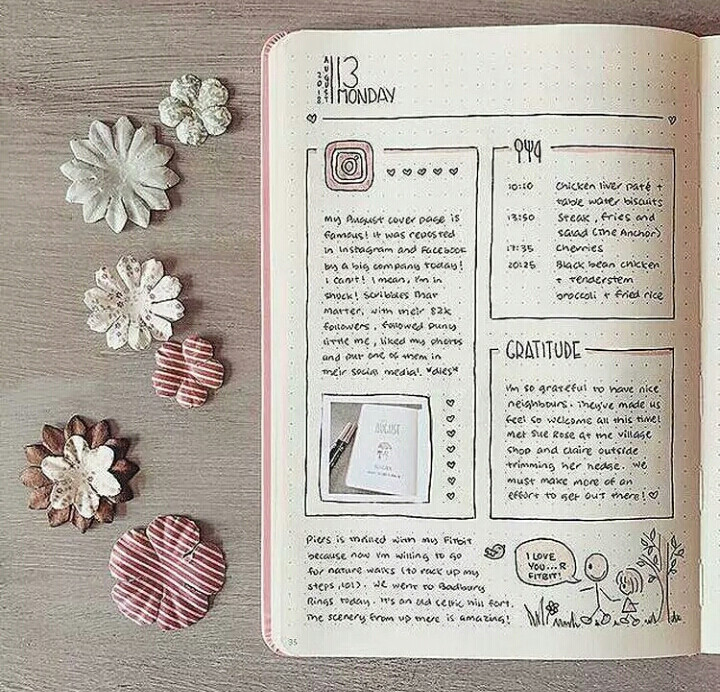 AUGUST
2018
13
MONDAY
My August cover page is
famous! It was reposted
in Instagram and Facebook
by a big company today!
I can't! I mean, I'm in
shuck! Scribbles That
Matter, with their 82k
followers, followed puny
little me, liked my photos
and put one of them in
their social media! *dies*
AUGUST
10:10 Chicken liver paté +
table water biscuits
13:50 Steak, fries and
salad (The Anchor)
17:35 Cherries
20:25 Black bean chicken
+ tenderstem
broccoli + fried rice
GRATITUDE
I'm so grateful to have nice
neighbours. They've made us
feel so welcome all this time!
Met Sue Rose at the village
shop and Claire outside
trimming her hedge. We
must make more of an
effort to get out there!
Piers is thrilled with my Fitbit
because now I'm willing to go
for nature walks (to rack up my
steps, lol). We went to Badbury
Rings today. It's an old Celtic hill fort.
The scenery from up there is amazing!
I LOVE
YOU...R
FITBIT!
35